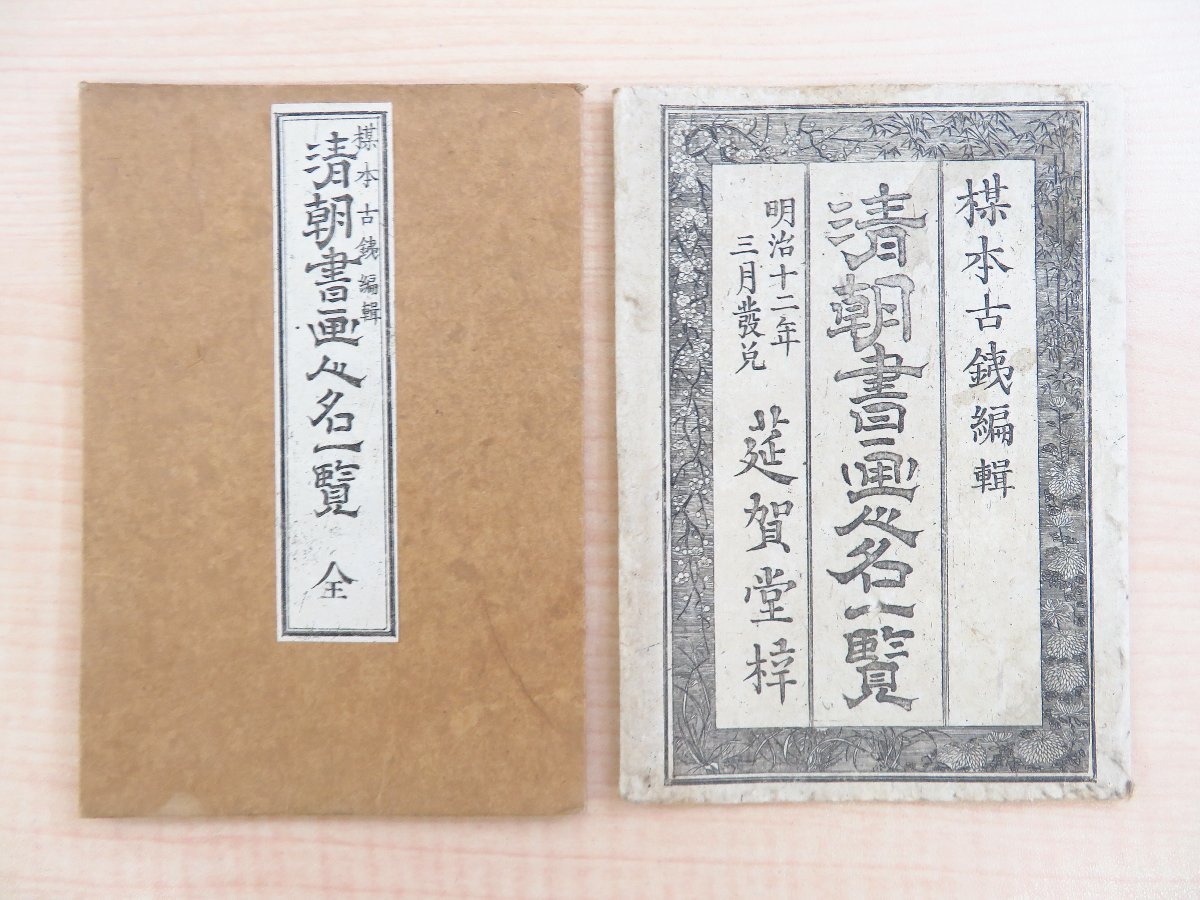 楳本古銕編輯
清朝書画人名一覧 全
楳本古銕編輯
清朝書画人名一覧
明治十二年
三月發兌
莚賀堂梓